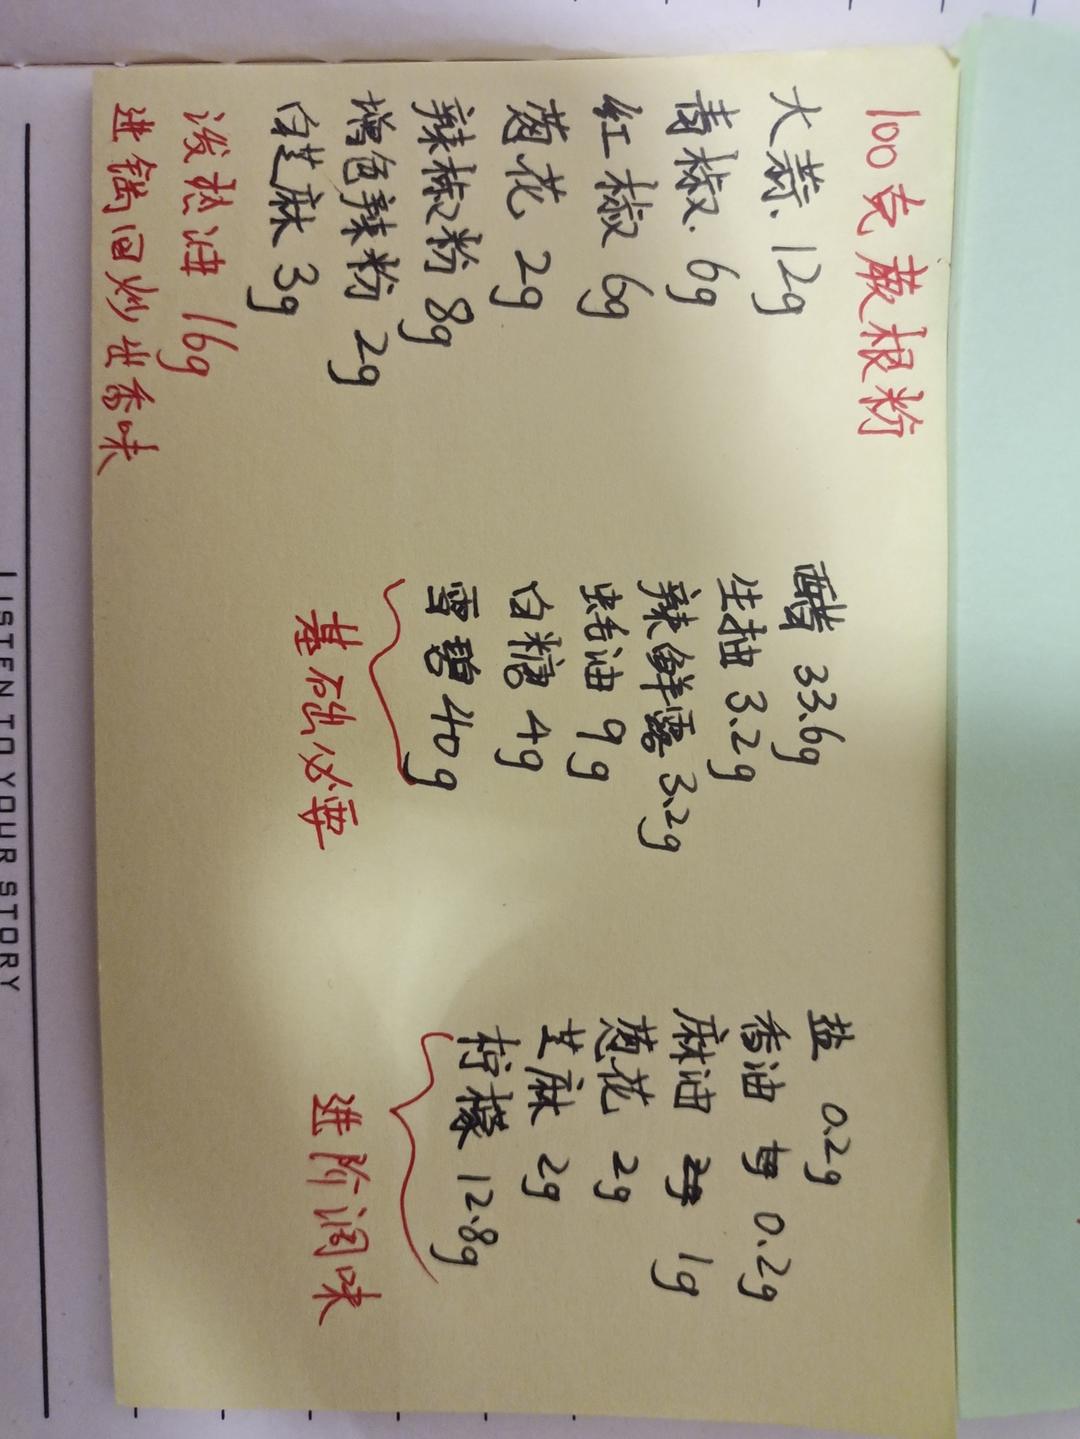 100克蕨根粉
大蒜. 12g
青椒. 6g
红椒 6g
葱花 2g
辣椒粉 8g
增色辣粉 2g
白芝麻 3g
泼热油 16g
进锅回炒出香味
醋 33.6g
生抽 3.2g
辣鲜露 3.2g
蚝油 9g
白糖 4g
雪碧 40g
基础必要
盐 0.2g
香油 0.2g
麻油 1g
葱花 2g
芝麻 2g
柠檬 12.8g
进阶润味
LISTEN TO YOUR STORY